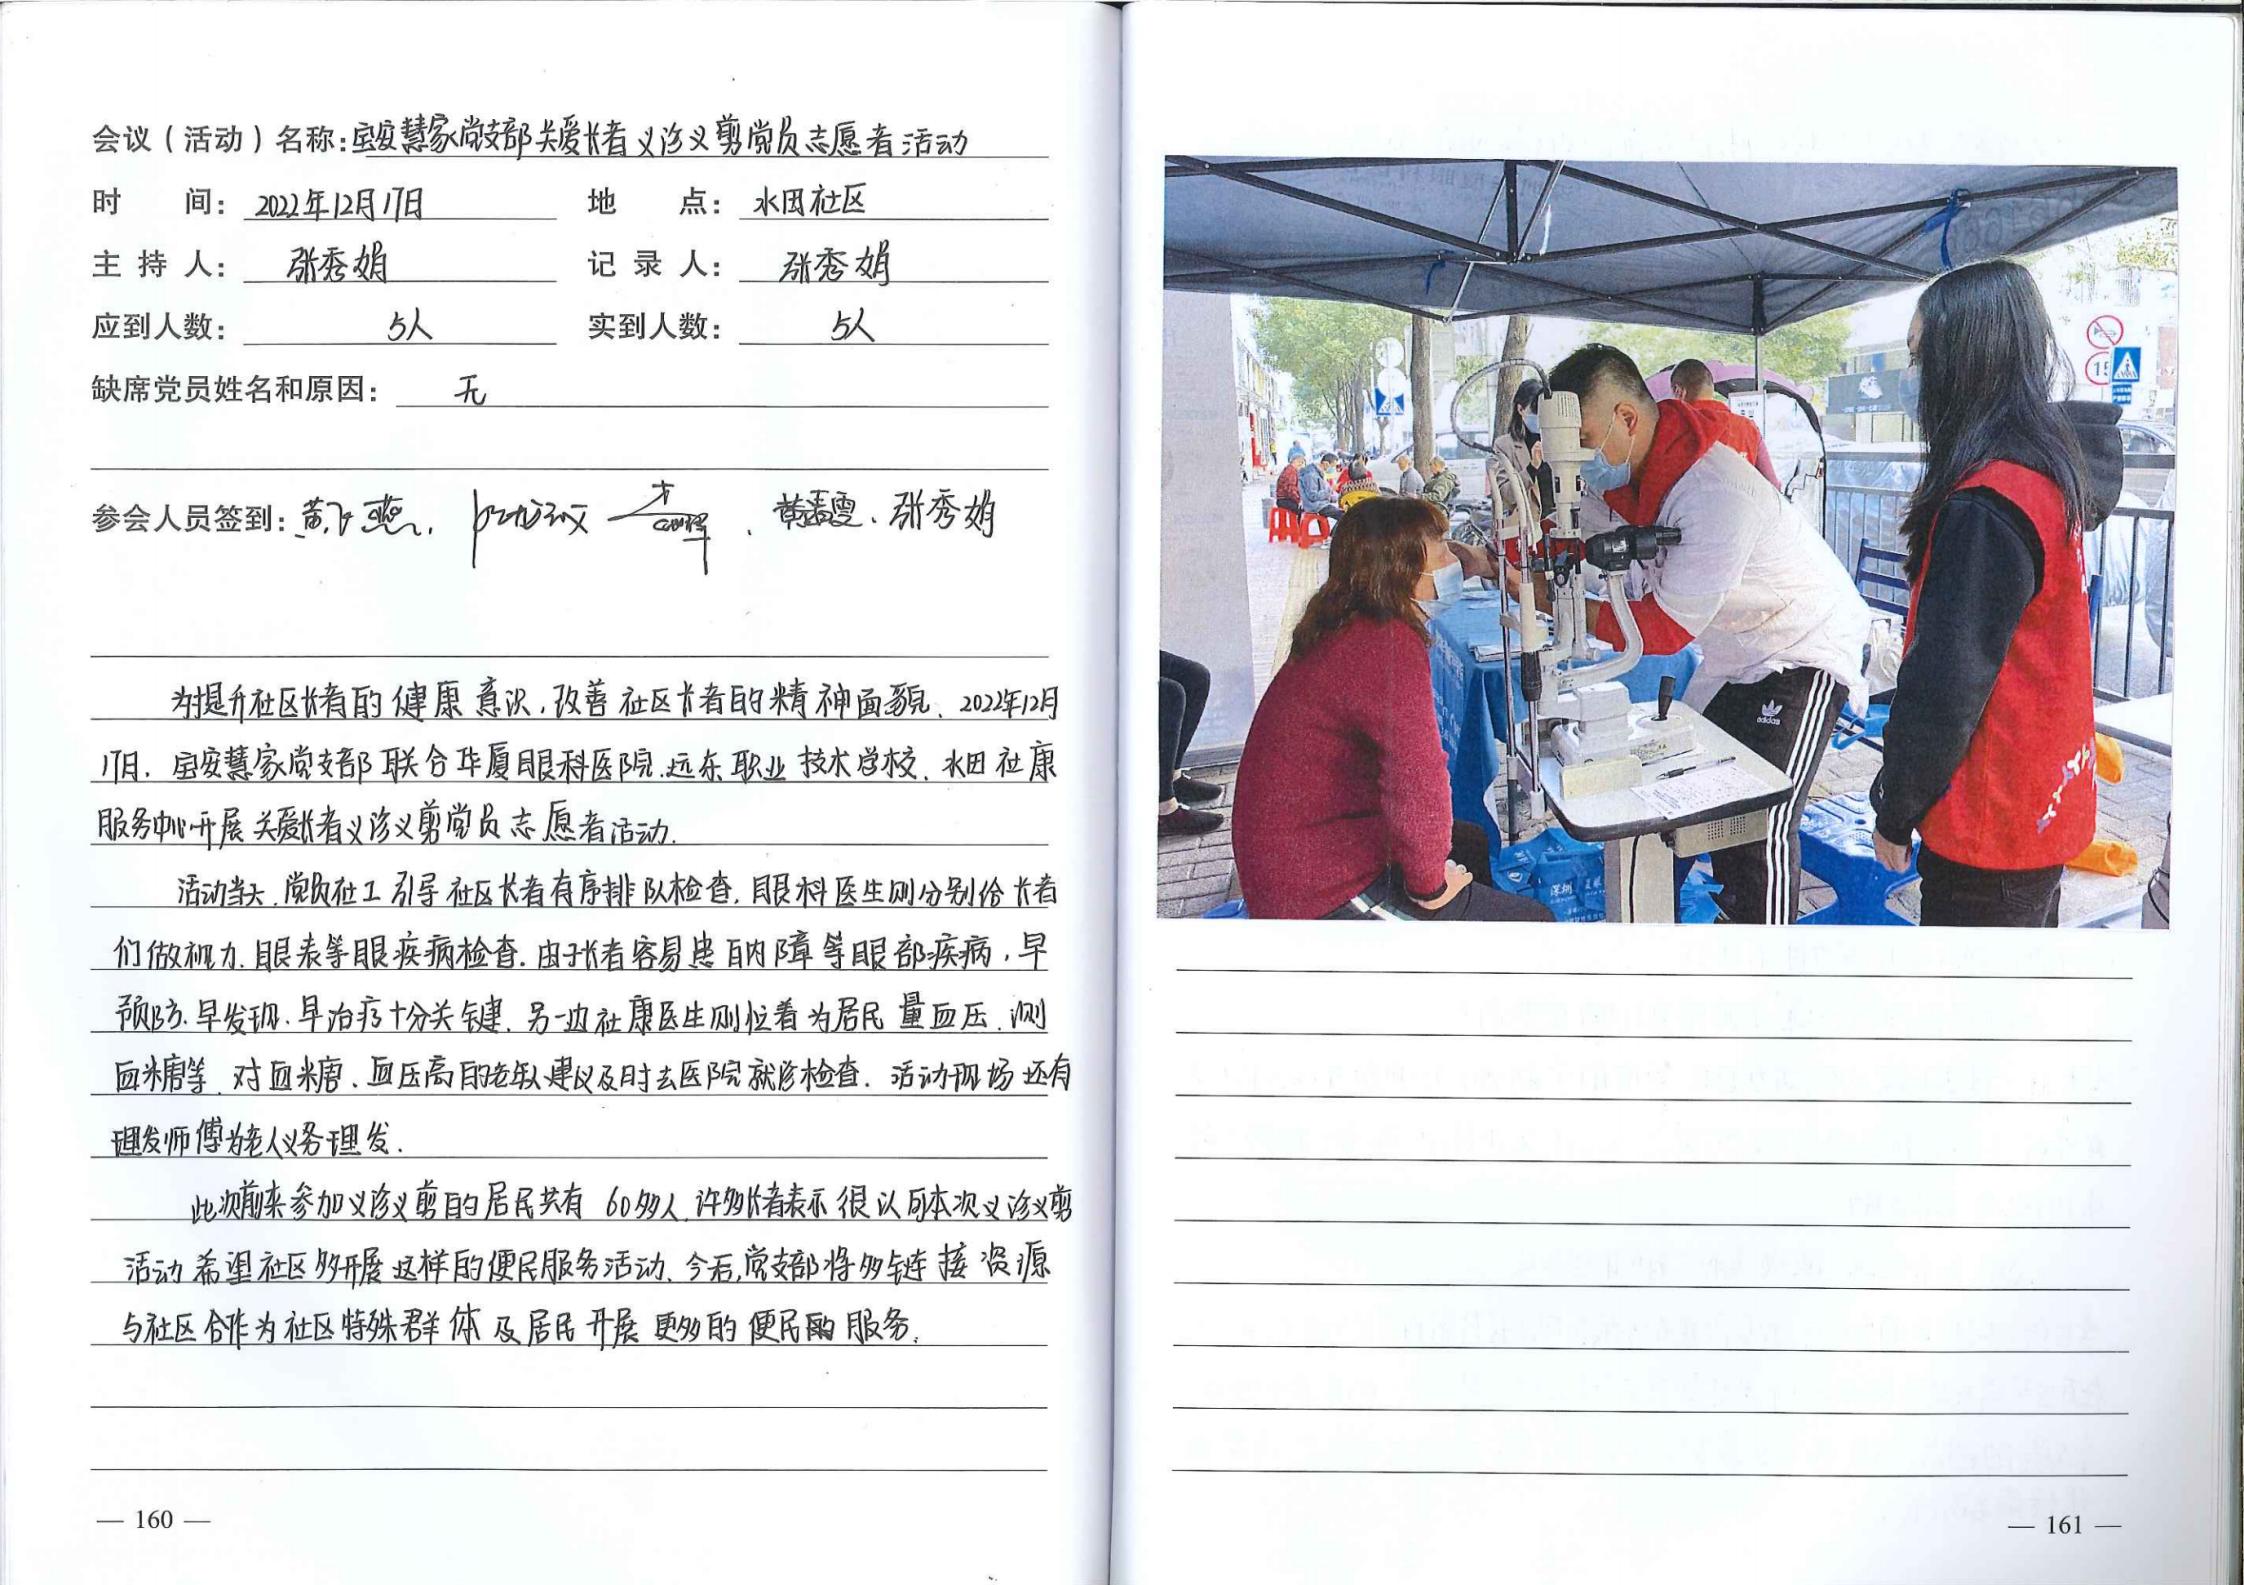 会议（活动）名称：宝安慧家党支部关爱长者义诊义剪党员志愿者活动
时 间：2022年12月17日 地 点：水田社区
主 持 人：张秀娟 记 录 人：张秀娟
应到人数：5人 实到人数：5人
缺席党员姓名和原因：无
参会人员签到：黄飞燕、张秀娟
为提升社区长者的健康意识，改善社区长者的精神面貌，2022年12月
17日，宝安慧家党支部联合华厦眼科医院、远东职业技术学校、水田社康
服务中心开展关爱长者义诊义剪党员志愿者活动.
活动当天，党员社工引导社区长者有序排队检查，眼科医生则分别给长者
们做视力、眼表等眼疾病检查.由于长者容易患白内障等眼部疾病，早
预防、早发现、早治疗十分关键.另一边社康医生则忙着为居民量血压、测
血糖等，对血糖、血压高的老年人建议及时去医院就诊检查.活动现场还有
理发师傅为老人义务理发.
此次前来参加义诊义剪的居民共有60多人，许多长者表示很认可本次义诊义剪
活动希望社区多开展这样的便民服务活动.今后，党支部将多链接资源
与社区合作为社区特殊群体及居民开展更多的便民的服务.
— 160 —
adidas
深圳
— 161 —